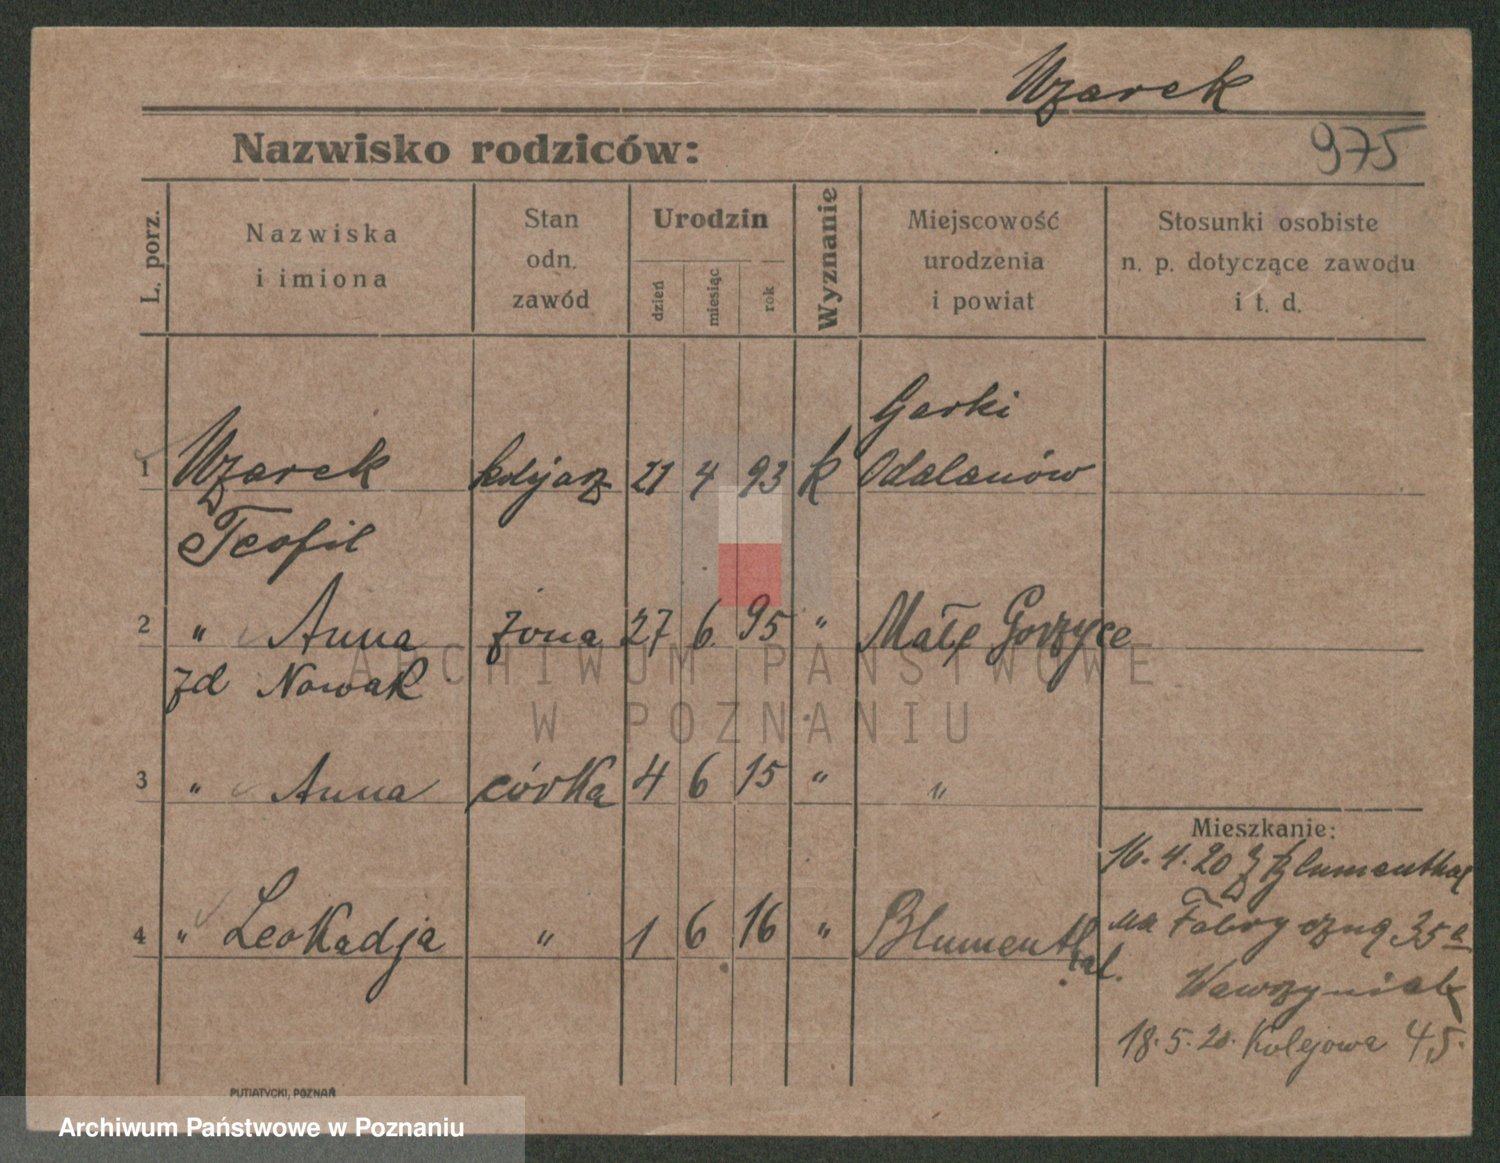 Uzarek
975
Nazwisko rodziców:
L. porz.
Nazwiska
i imiona
Stan
odn.
zawód
Urodzin
dzień
miesiąc
rok
Wyznanie
Miejscowość
urodzenia
i powiat
Stosunki osobiste
n. p. dotyczące zawodu
i t. d.
Garki
1 Uzarek kolejarz 21 4 93 k Odalanów
Teofil
2 " Anna żona 27 6 95 " Małe Gorzyce
zd Nowak
3 " Anna córka 4 6 15 " "
4 " Leokadja " 1 6 16 " Blumenthal.
Mieszkanie:
16.4.20 z Blumenthal
na Fabryczną 35a
Wawrzyniak
18.5.20. Kolejowa 45.
PUTIATYCKI, POZNAŃ
ARCHIWUM PAŃSTWOWE
W POZNANIU
Archiwum Państwowe w Poznaniu